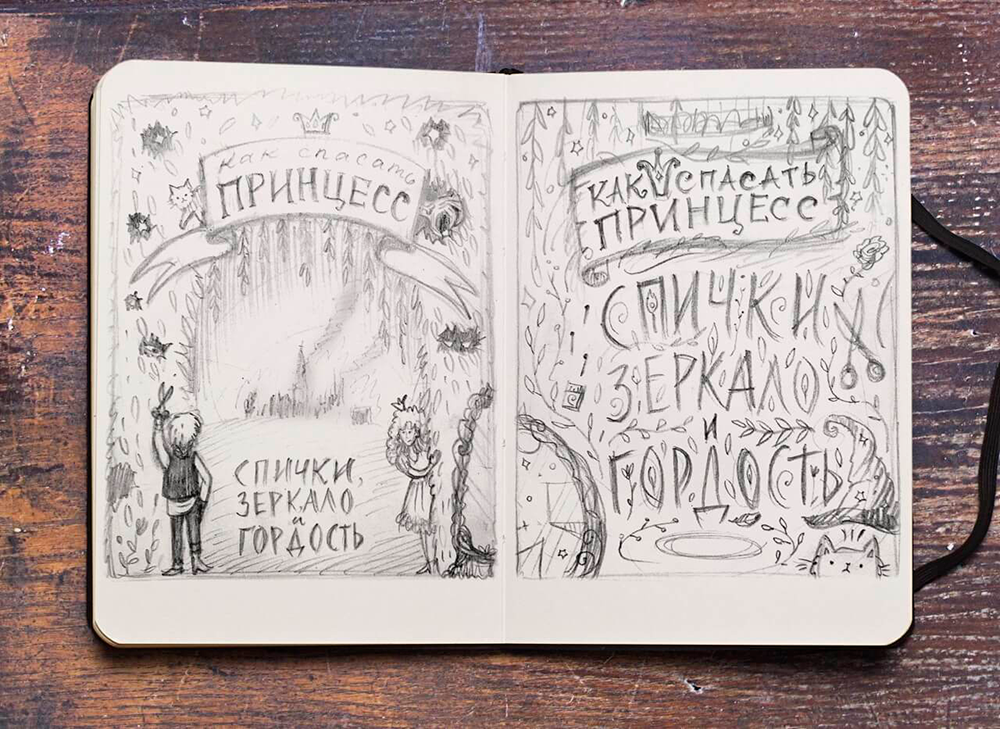 как спасать
ПРИНЦЕСС
СПИЧКИ,
ЗЕРКАЛО
и
ГОРДОСТЬ
КАК СПАСАТЬ
ПРИНЦЕСС
СПИЧКИ
ЗЕРКАЛО
И
ГОРДОСТЬ